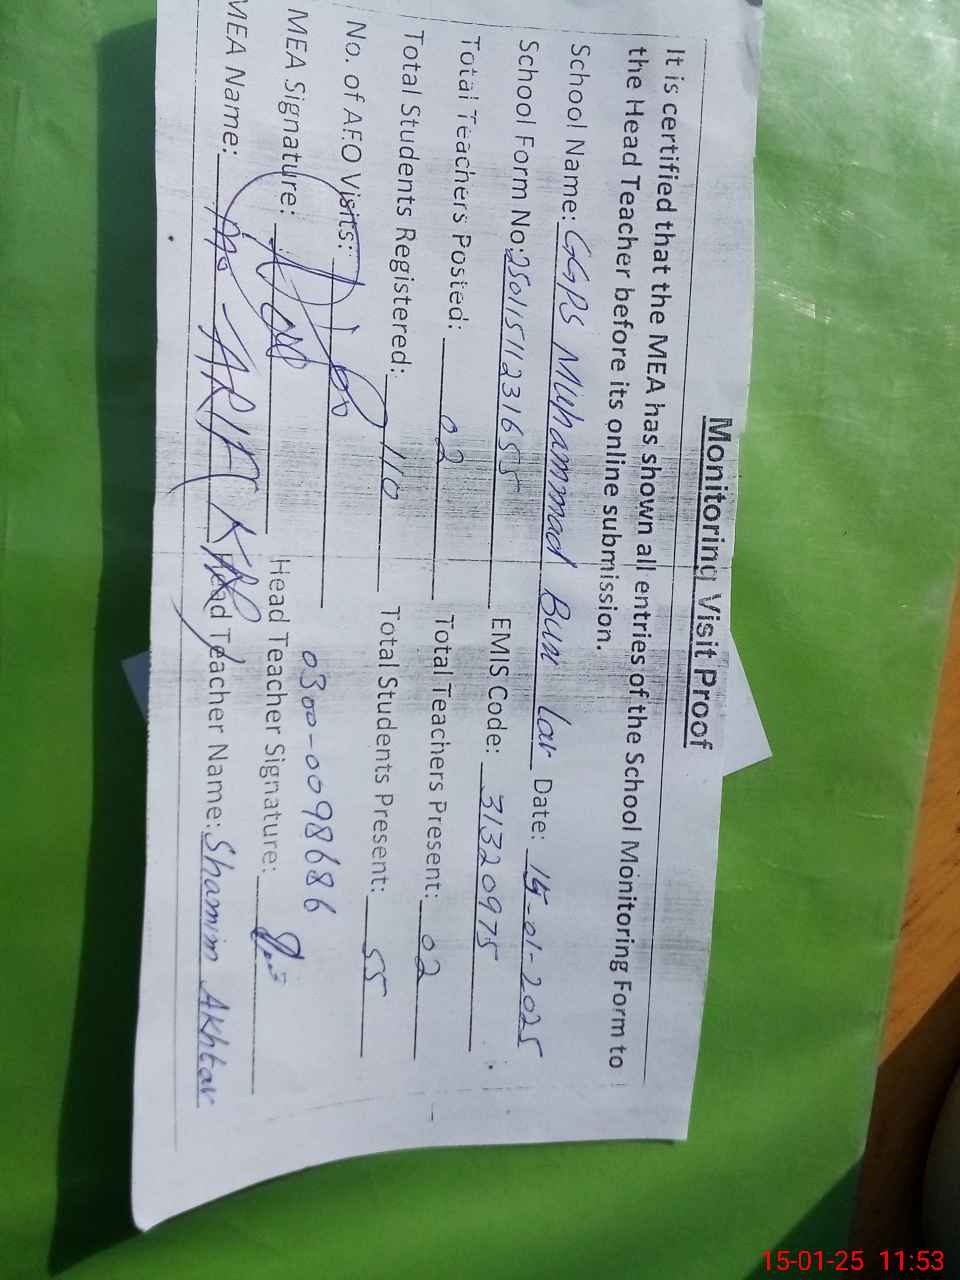 Monitoring Visit Proof
It is certified that the MEA has shown all entries of the School Monitoring Form to
the Head Teacher before its online submission.
School Name: GGPS Muhammad Bun Lar Date: 15-01-2025
School Form No: 25011511231655 EMIS Code: 31320975
Total Teachers Posted: 02 Total Teachers Present: 02
Total Students Registered: 110 Total Students Present: 55
No. of AEO Visits:
0300-0098686
MEA Signature: Head Teacher Signature:
MEA Name: ARIF Head Teacher Name: Shamim Akhtar
15-01-25 11:53